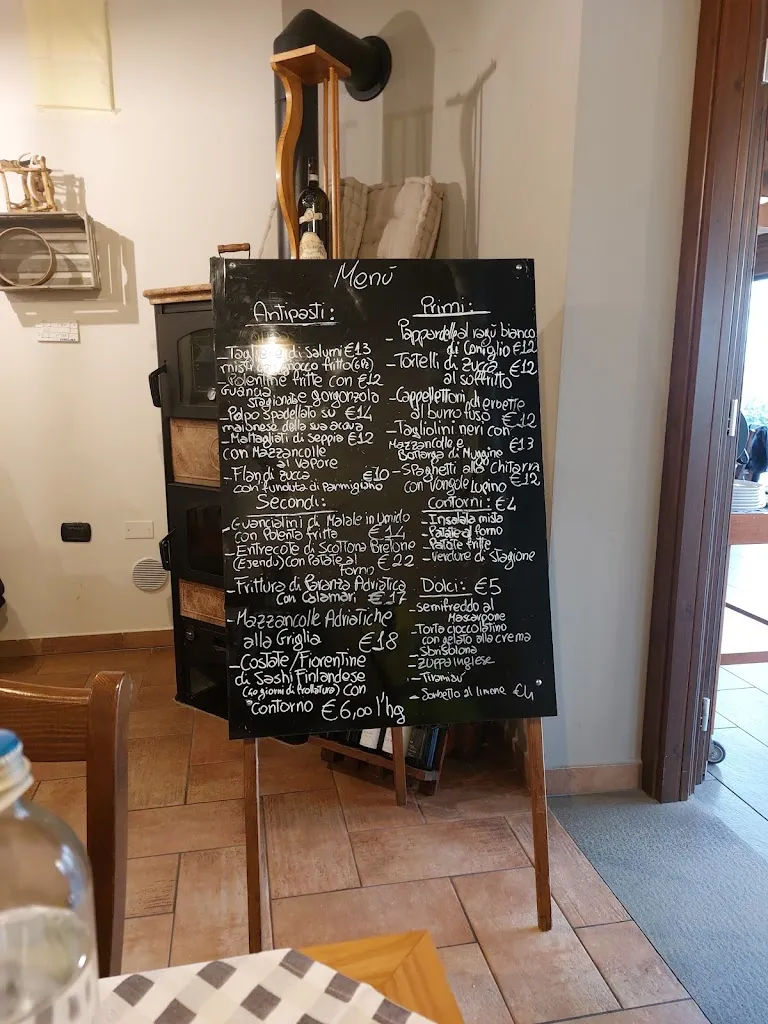 Menù
Antipasti:
- Tagliere di Salumi €13
misti con gnocco fritto (6 Pz)
- Polentine fritte con €12
Guancia
stagionata e gorgonzola
- Polpo Spadellato su €14
maionese della sua acqua
- Maltagliati di seppia €12
con Mazzancolle
al vapore
- Flan di zucca €10
con funduta di Parmigiano
Secondi:
- Guancialini di Maiale in Umido
con Polenta fritta €14
- Entrecote di Scottona Bretone
(Ejendu) con Patate al
forno €22
- Frittura di Paranza Adriatica
con Calamari €17
- Mazzancolle Adriatiche
alla Griglia €18
- Costate/Fiorentine
di Sashi Finlandese
(40 giorni di frollatura) con
contorno €6,00 l'hg
Primi:
- Pappardelle al ragù bianco
di Coniglio €12
- Tortelli di zucca €12
al soffritto
- Cappellettoni di erbette
al burro fuso €12
- Tagliolini neri con
Mazzancolle e €13
Bottarga di Muggine
- Spaghetti alla chitarra
con vongole Lupino €12
Contorni: €4
- Insalata mista
- Patate al forno
- Patate fritte
- Verdure di Stagione
Dolci: €5
- semifreddo al
Mascarpone
- Torta cioccolatino
con gelato alla crema
- Sbrisolona
- Zuppa inglese
- Tiramisù
- Sorbetto al limone €4